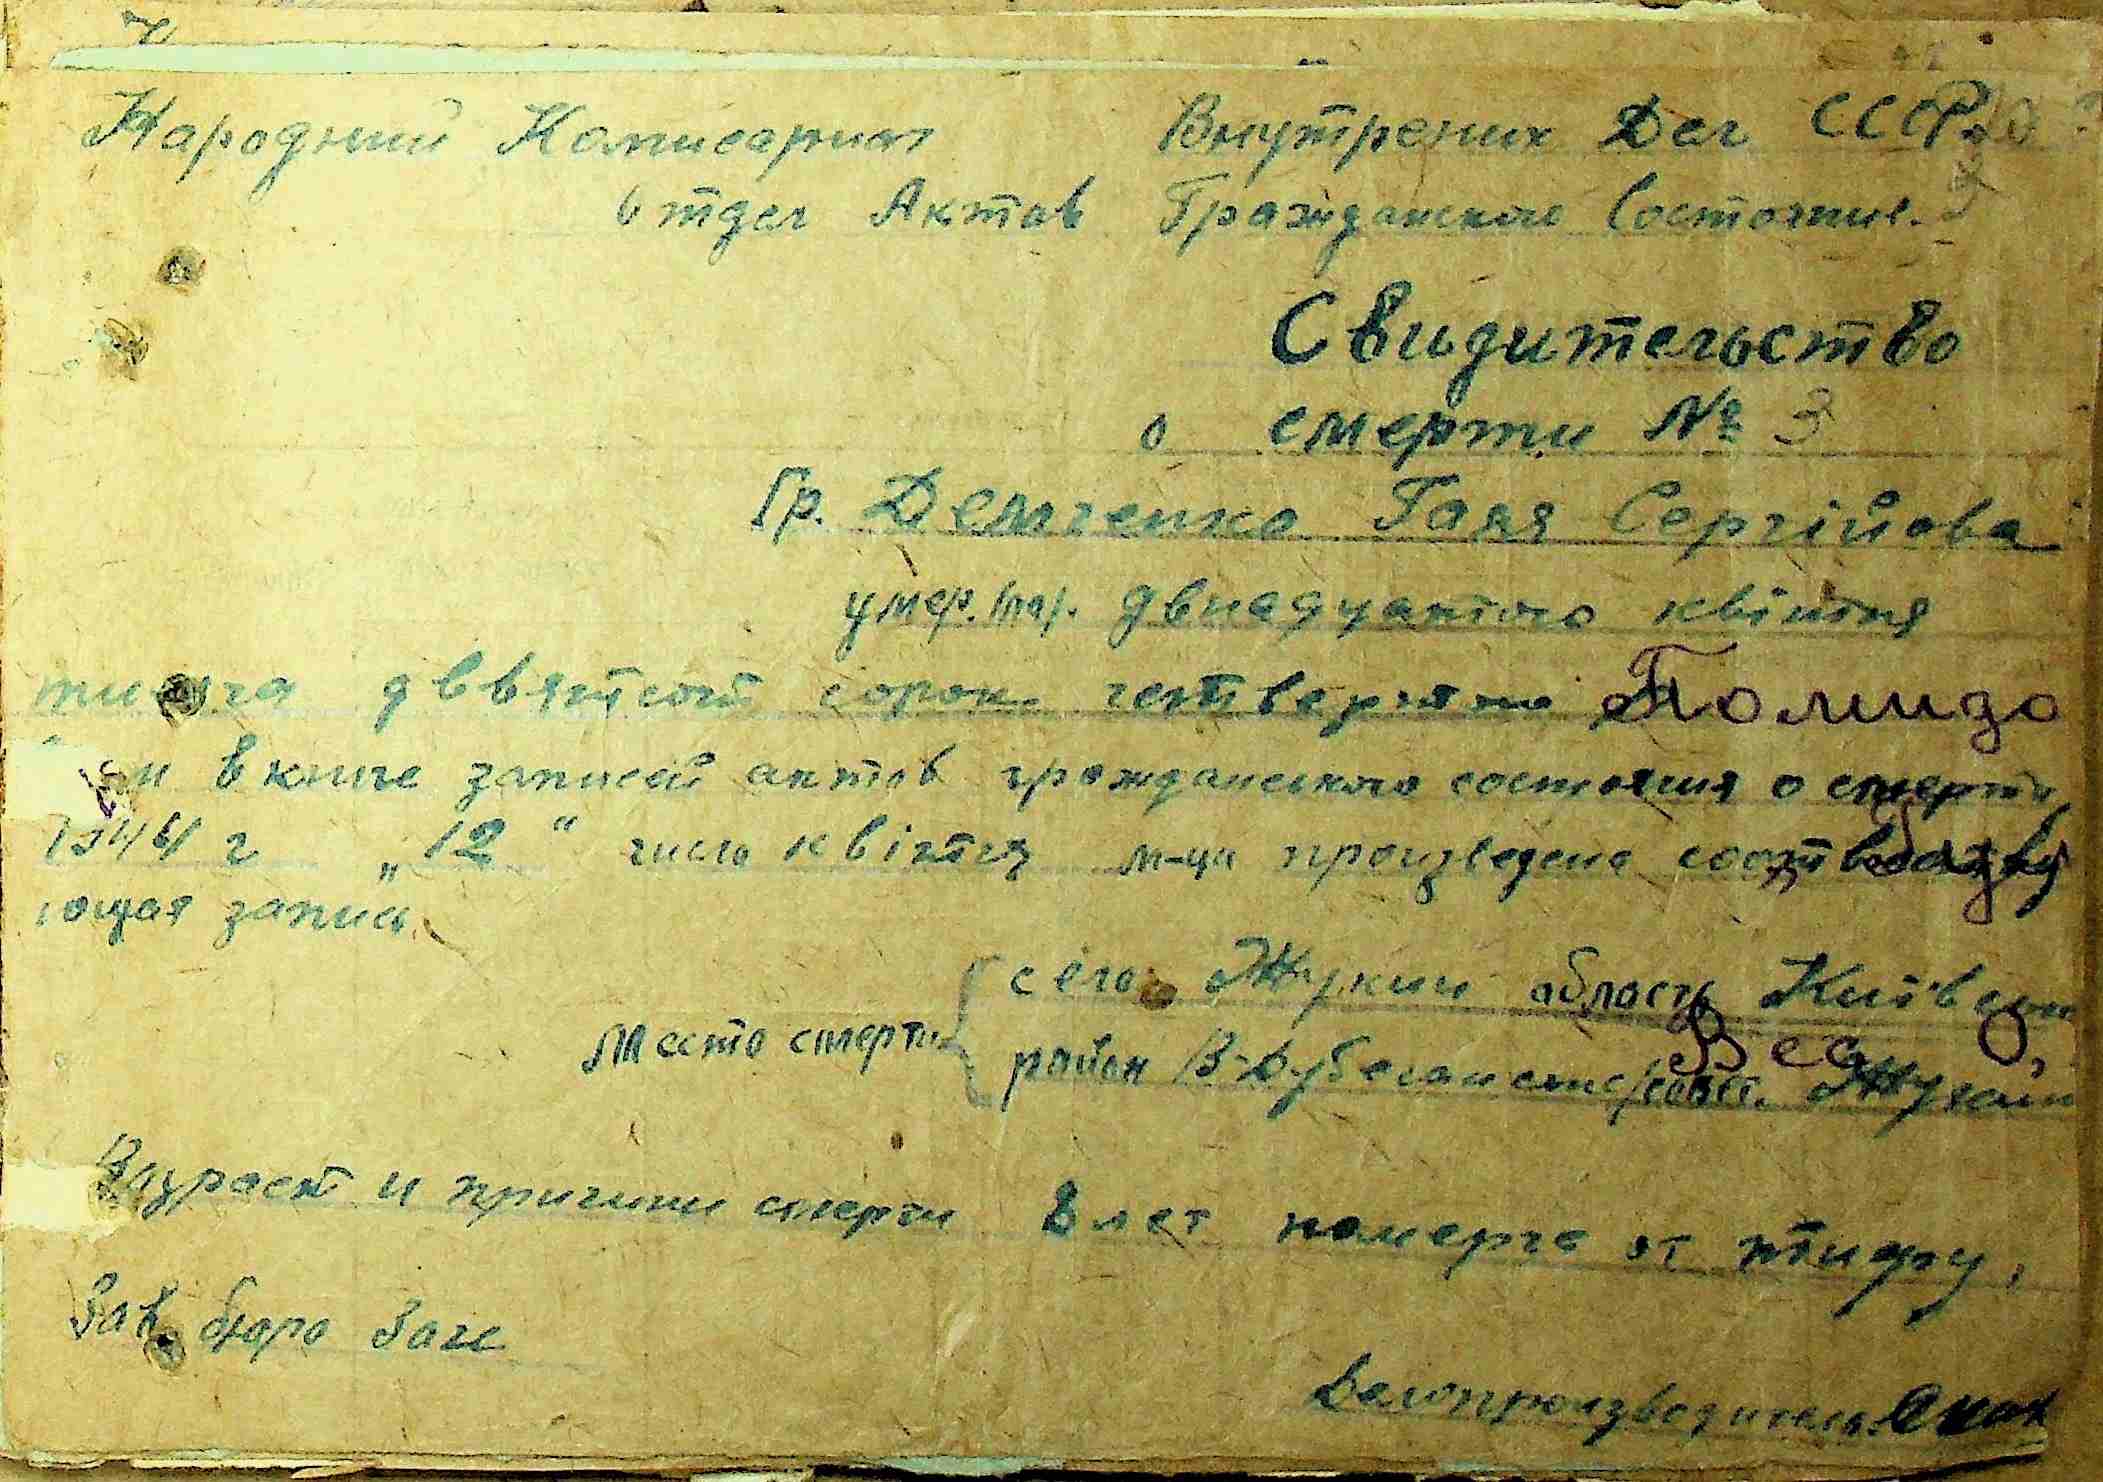 Народний Комисариат Внутрених Дел СССР.
Отдел Актов Гражданского Состояние.
Свидительство
о смерти № 3
Гр. Демченко Галя Сергійова
умер.(ла). двнадцатого квітня
дввятсот сорок четвертого Помидо
в книге записей актов гражданського состояния о смерти
1944 г „12“ число квітня м-ця произведена соответству
ющая запись
село Жукин область Київськ
Место смерти
район В-Дубечанский/совет. Жукин
Вес 0,
Возраст и причини смерти 8 лет померла от тифу,
Зав. бюро Загс
Делопроизводитель